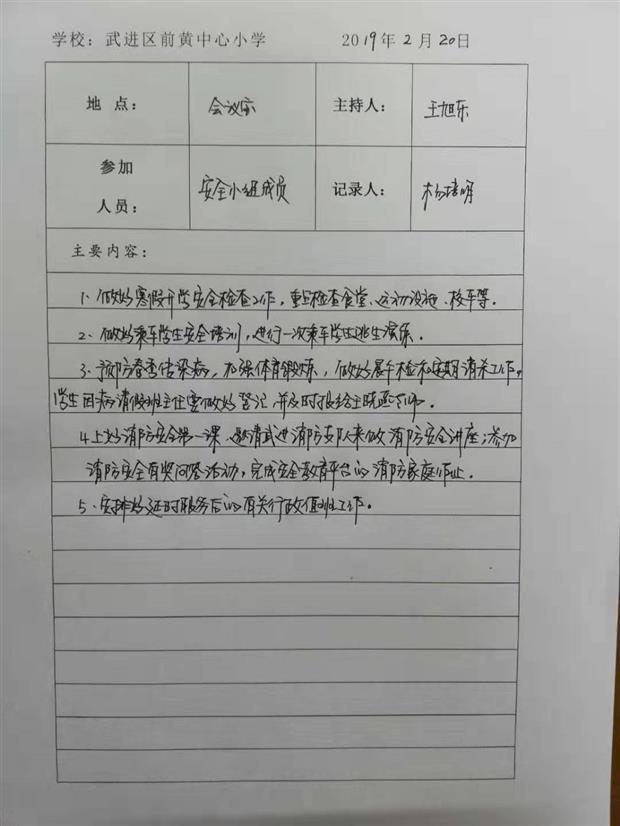 学校：武进区前黄中心小学 2019年2月20日
地 点： 会议室 主持人： 王旭东
参加
人员： 安全小组成员 记录人： 杨
主要内容：
1、做好寒假开学安全检查工作，重点检查食堂、运动设施、校车等。
2、做好乘车学生安全培训，进行一次乘车学生逃生演练。
3、预防春季传染病，加强体育锻炼，做好晨午检和定期清杀工作，
学生因病请假班主任要做好登记，并及时报给王晓燕
4、上好消防安全第一课，邀请武进消防支队来做消防安全讲座；参加
消防安全有奖问答活动，完成安全教育平台的消防家庭作业。
5、安排好延时服务后的有关行政值班工作。